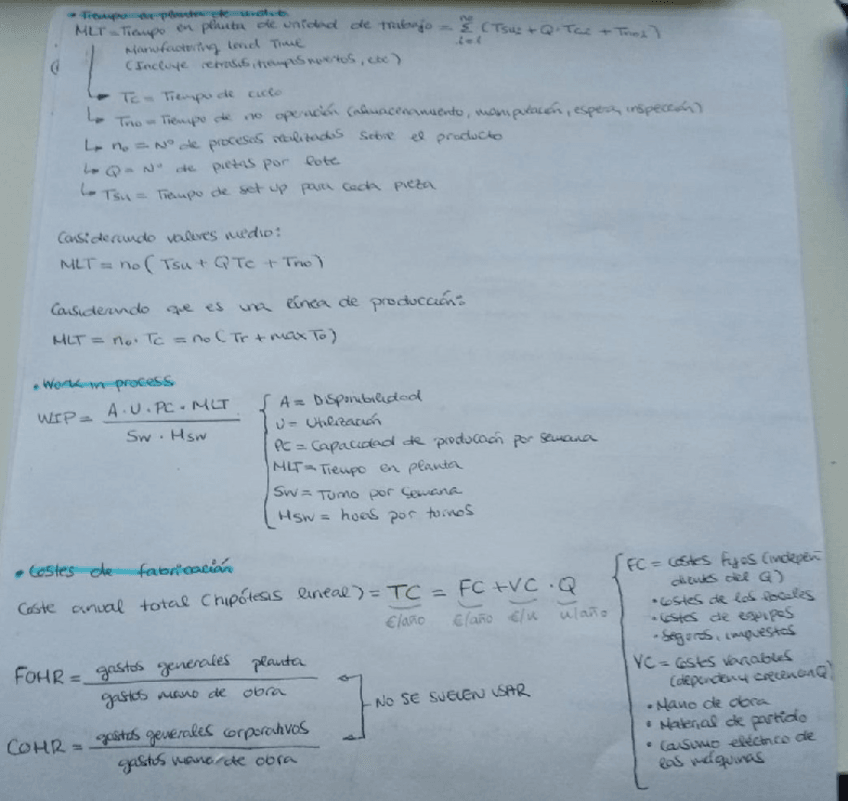 • Tiempo en planta de u.d.t.
MLT = Tiempo en planta de unidad de trabajo = Σ i=1 no (Tsui + Q·Tci + Tnoi)
Manufacturing Lead Time
(Incluye retrasos, tiempos muertos, etc)
↳ Tc = Tiempo de ciclo
↳ Tno = Tiempo de no operación (almacenamiento, manipulación, espera, inspección)
↳ no = Nº de procesos realizados sobre el producto
↳ Q = Nº de piezas por lote
↳ Tsu = Tiempo de set up para cada pieza
Considerando valores medio:
MLT = no (Tsu + QTc + Tno)
Considerando que es una línea de producción:
MLT = no · Tc = no (Tr + max To)
• Work in process
WIP = A·U·PC·MLT / Sw · Hsw
A = Disponibilidad
U = Utilización
PC = Capacidad de producción por semana
MLT = Tiempo en planta
SW = Turno por semana
HSW = horas por turnos
• Costes de fabricación
Coste anual total (hipótesis lineal) = TC = FC + VC · Q
€/año €/año €/u u/año
FC = Costes fijos (indepen
dientes del Q)
• Costes de los locales
• Costes de equipos
• Seguros, impuestos
VC = Costes variables
(dependen y crecen con Q)
• Mano de obra
• Material de partido
• Consumo eléctrico de
las máquinas
FOHR = gastos generales planta / gastos mano de obra
NO SE SUELEN USAR
COHR = gastos generales corporativos / gastos mano de obra